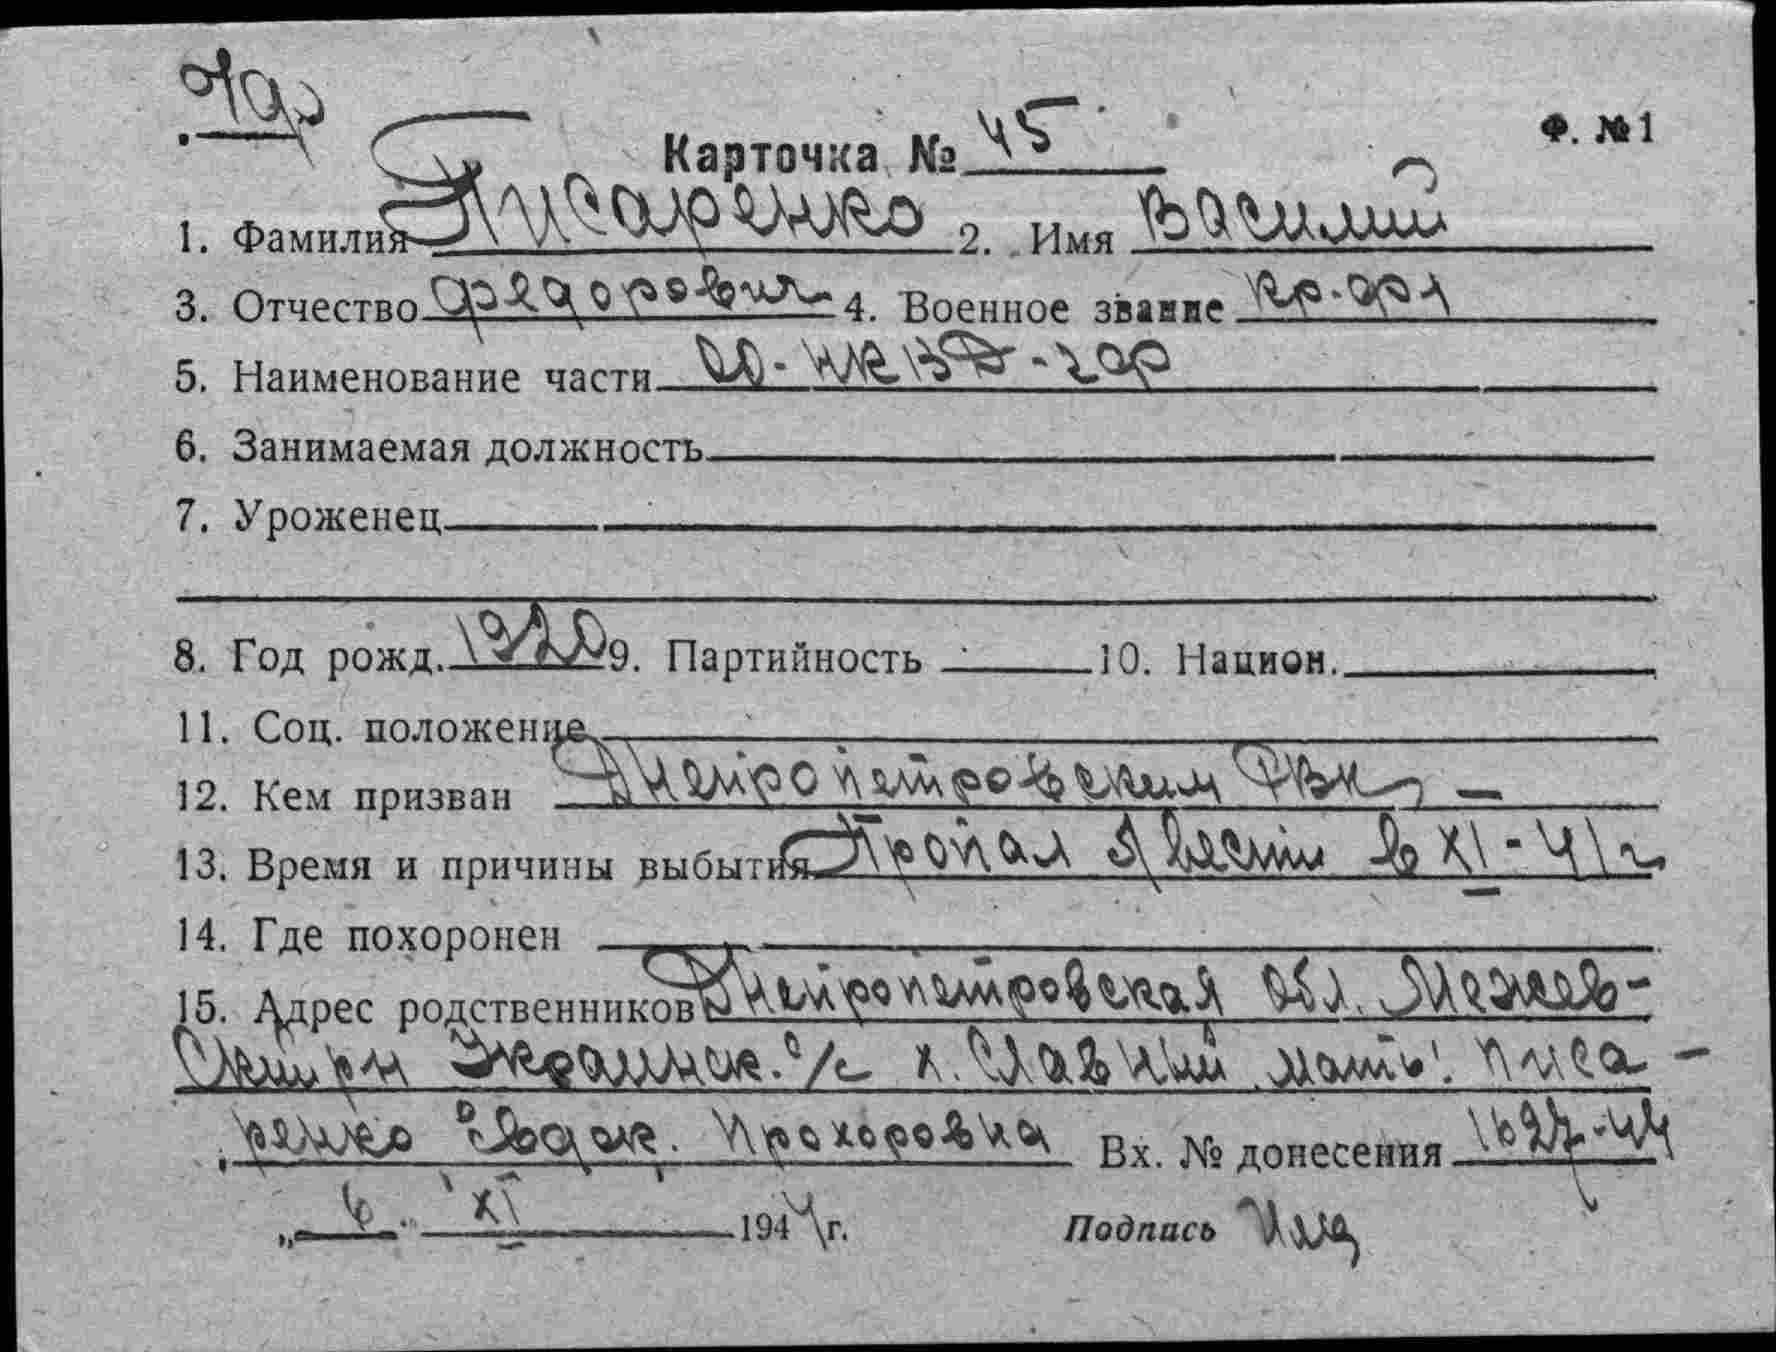 Ф. №1
Карточка № 45
1. Фамилия Писаренко 2. Имя Василий
3. Отчество Федорович 4. Военное звание кр-фл
5. Наименование части НКВД
6. Занимаемая должность
7. Уроженец
8. Год рожд. 1920 9. Партийность 10. Национ.
11. Соц. положение
12. Кем призван Днепропетровским РВК
13. Время и причины выбытия Пропал б/вести в XI-41 г
14. Где похоронен
15. Адрес родственников Днепропетровская обл. Межев-
ский рн Украинск. с/с х. Славный мать: Писа-
ренко Евдок. Прохоровна Вх. № донесения 1627-44
„ 6 " XI 1944 г. Подпись